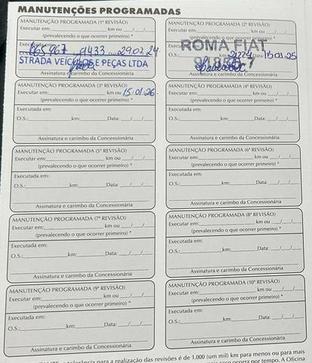 MANUTENÇÕES PROGRAMADAS
MANUTENÇÃO PROGRAMADA (1ª REVISÃO)
Executar em: km ou / /
(prevalecendo o que ocorrer primeiro) *
29 02 24
STRADA VEÍCULOS E PEÇAS LTDA
Assinatura e carimbo da Concessionária
MANUTENÇÃO PROGRAMADA (2ª REVISÃO)
Executar em: km ou / /
(prevalecendo o que ocorrer primeiro) *
ROMA FIAT
15 01 25
Assinatura e carimbo da Concessionária
MANUTENÇÃO PROGRAMADA (3ª REVISÃO)
Executar em: km ou 15 01 26
(prevalecendo o que ocorrer primeiro) *
Executada em:
O.S.: km: Data: / /
Assinatura e carimbo da Concessionária
MANUTENÇÃO PROGRAMADA (4ª REVISÃO)
Executar em: km ou / /
(prevalecendo o que ocorrer primeiro) *
Executada em:
O.S.: km: Data: / /
Assinatura e carimbo da Concessionária
MANUTENÇÃO PROGRAMADA (5ª REVISÃO)
Executar em: km ou / /
(prevalecendo o que ocorrer primeiro) *
Executada em:
O.S.: km: Data: / /
Assinatura e carimbo da Concessionária
MANUTENÇÃO PROGRAMADA (6ª REVISÃO)
Executar em: km ou / /
(prevalecendo o que ocorrer primeiro) *
Executada em:
O.S.: km: Data: / /
Assinatura e carimbo da Concessionária
MANUTENÇÃO PROGRAMADA (7ª REVISÃO)
Executar em: km ou / /
(prevalecendo o que ocorrer primeiro) *
Executada em:
O.S.: km: Data: / /
Assinatura e carimbo da Concessionária
MANUTENÇÃO PROGRAMADA (8ª REVISÃO)
Executar em: km ou / /
(prevalecendo o que ocorrer primeiro) *
Executada em:
O.S.: km: Data: / /
Assinatura e carimbo da Concessionária
MANUTENÇÃO PROGRAMADA (9ª REVISÃO)
Executar em: km ou / /
(prevalecendo o que ocorrer primeiro) *
Executada em:
O.S.: km: Data: / /
Assinatura e carimbo da Concessionária
MANUTENÇÃO PROGRAMADA (10ª REVISÃO)
Executar em: km ou / /
(prevalecendo o que ocorrer primeiro) *
Executada em:
O.S.: km: Data: / /
Assinatura e carimbo da Concessionária
para a realização das revisões é de 1.000 (um mil) km para menos ou para mais
ocorra por tempo. A Oficina